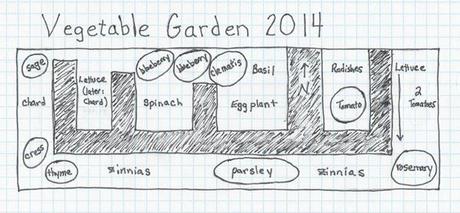 Vegetable Garden 2014
sage
blueberry
blueberry
clematis
Basil
N
Radishes
Lettuce
Lettuce
(later:
Chard)
chard
Spinach
Eggplant
Tomato
2
Tomatoes
cress
thyme
zinnias
parsley
zinnias
rosemary